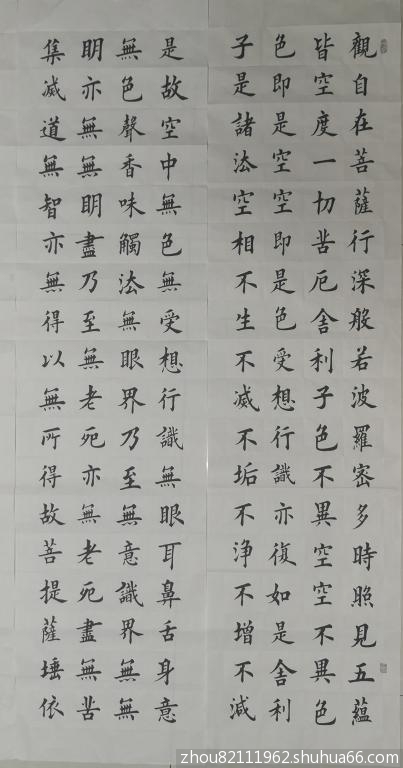 觀自在菩薩行深般若波羅密多時照見五蘊
皆空度一切苦厄舍利子色不異空空不異色
色即是空空即是色受想行識亦復如是舍利
子是諸法空相不生不滅不垢不淨不增不減
是故空中無色無受想行識無眼耳鼻舌身意
無色聲香味觸法無眼界乃至無意識界無無
明亦無無明盡乃至無老死亦無老死盡無苦
集滅道無智亦無得以無所得故菩提薩埵依
zhou82111962.shuhua66.com